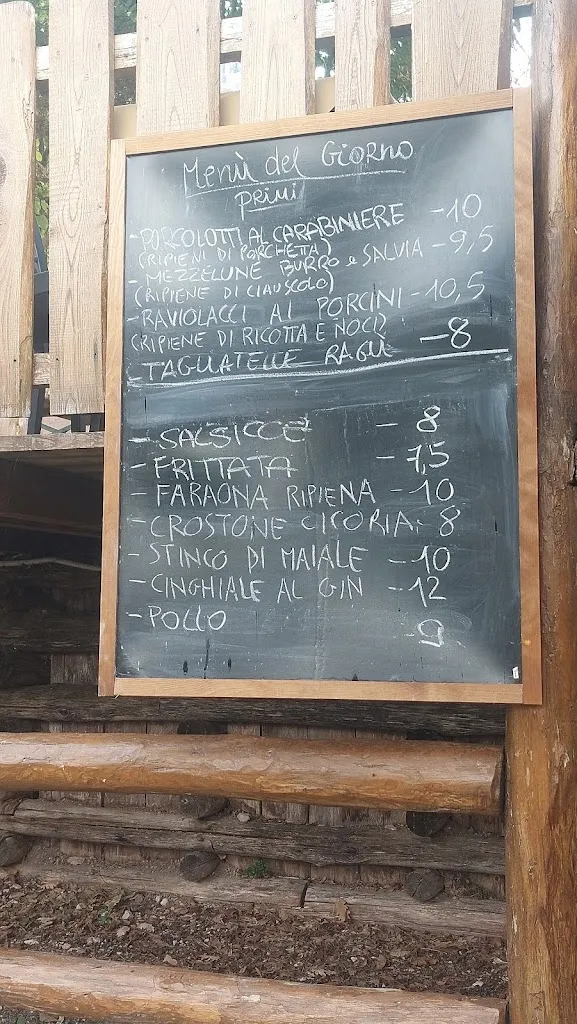 Menù del Giorno
primi
- PORCOLOTTI AL CARABINIERE - 10
(RIPIENI DI PORCHETTA)
- MEZZELUNE BURRO e SALVIA - 9,5
(RIPIENE DI CIAUSCOLO)
- RAVIOLACCI AI PORCINI - 10,5
(RIPIENE DI RICOTTA E NOCI)
- TAGLIATELLE RAGÙ - 8
- SALSICCE - 8
- FRITTATA - 7,5
- FARAONA RIPIENA - 10
- CROSTONE CICORIA - 8
- STINCO DI MAIALE - 10
- CINGHIALE AL GIN - 12
- POLLO 9